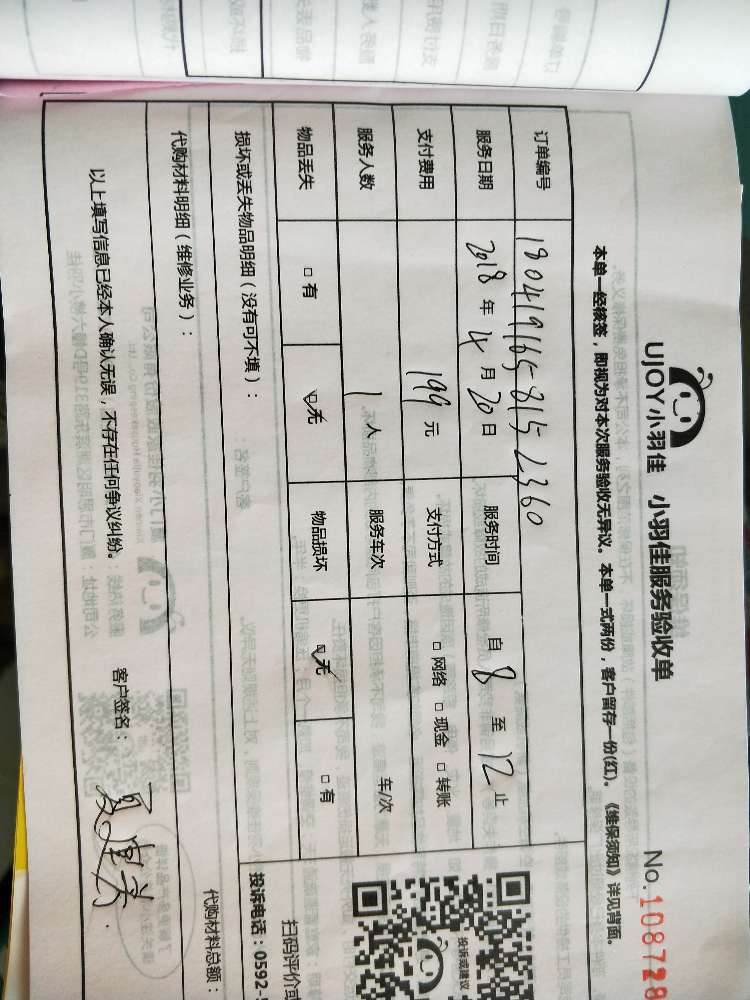 UJOY小羽佳 小羽佳服务验收单 No.108728
本单一经核签，即视为对本次服务验收无异议。本单一式两份，客户留存一份(红)。《维保须知》详见背面。
订单编号 1804191658152360
服务日期 2018年4月20日 服务时间 自8至12止
支付费用 199元 支付方式 □网络 □现金 □转账
服务人数 1人 服务车次 车/次
物品丢失 □有 ☑无 物品损坏 ☑无 □有
损坏或丢失物品明细（没有可不填）：
扫码评价或
投诉电话：0592-
投诉或建议
代购材料明细（维修业务）： 代购材料总额：
以上填写信息已经本人确认无误，不存在任何争议纠纷。 客户签名：